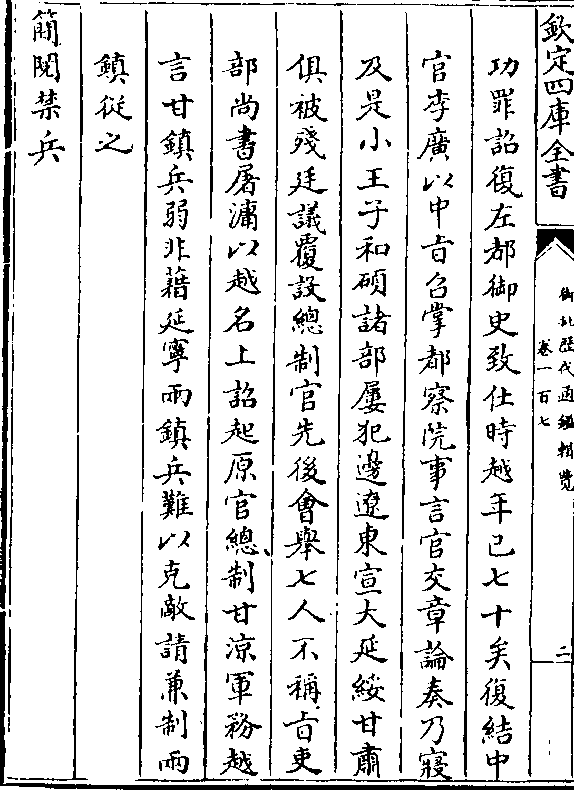 欽定四庫全書
御批歷代通鑑輯覽
卷一百七
二
功罪詔復左都御史致仕時越年已七十矣復結中
官李廣以中㫖召掌都察院事言官交章論奏乃寢
及是小王子和碩諸部屢犯邊遼東宣大延綏甘肅
俱被殘廷議覆設總制官先後會舉七人不稱㫖吏
部尚書屠滽以越名上詔起原官總制甘涼軍務越
言甘鎮兵弱非藉延寧兩鎮兵難以克敵請兼制兩
鎮從之
簡閱禁兵